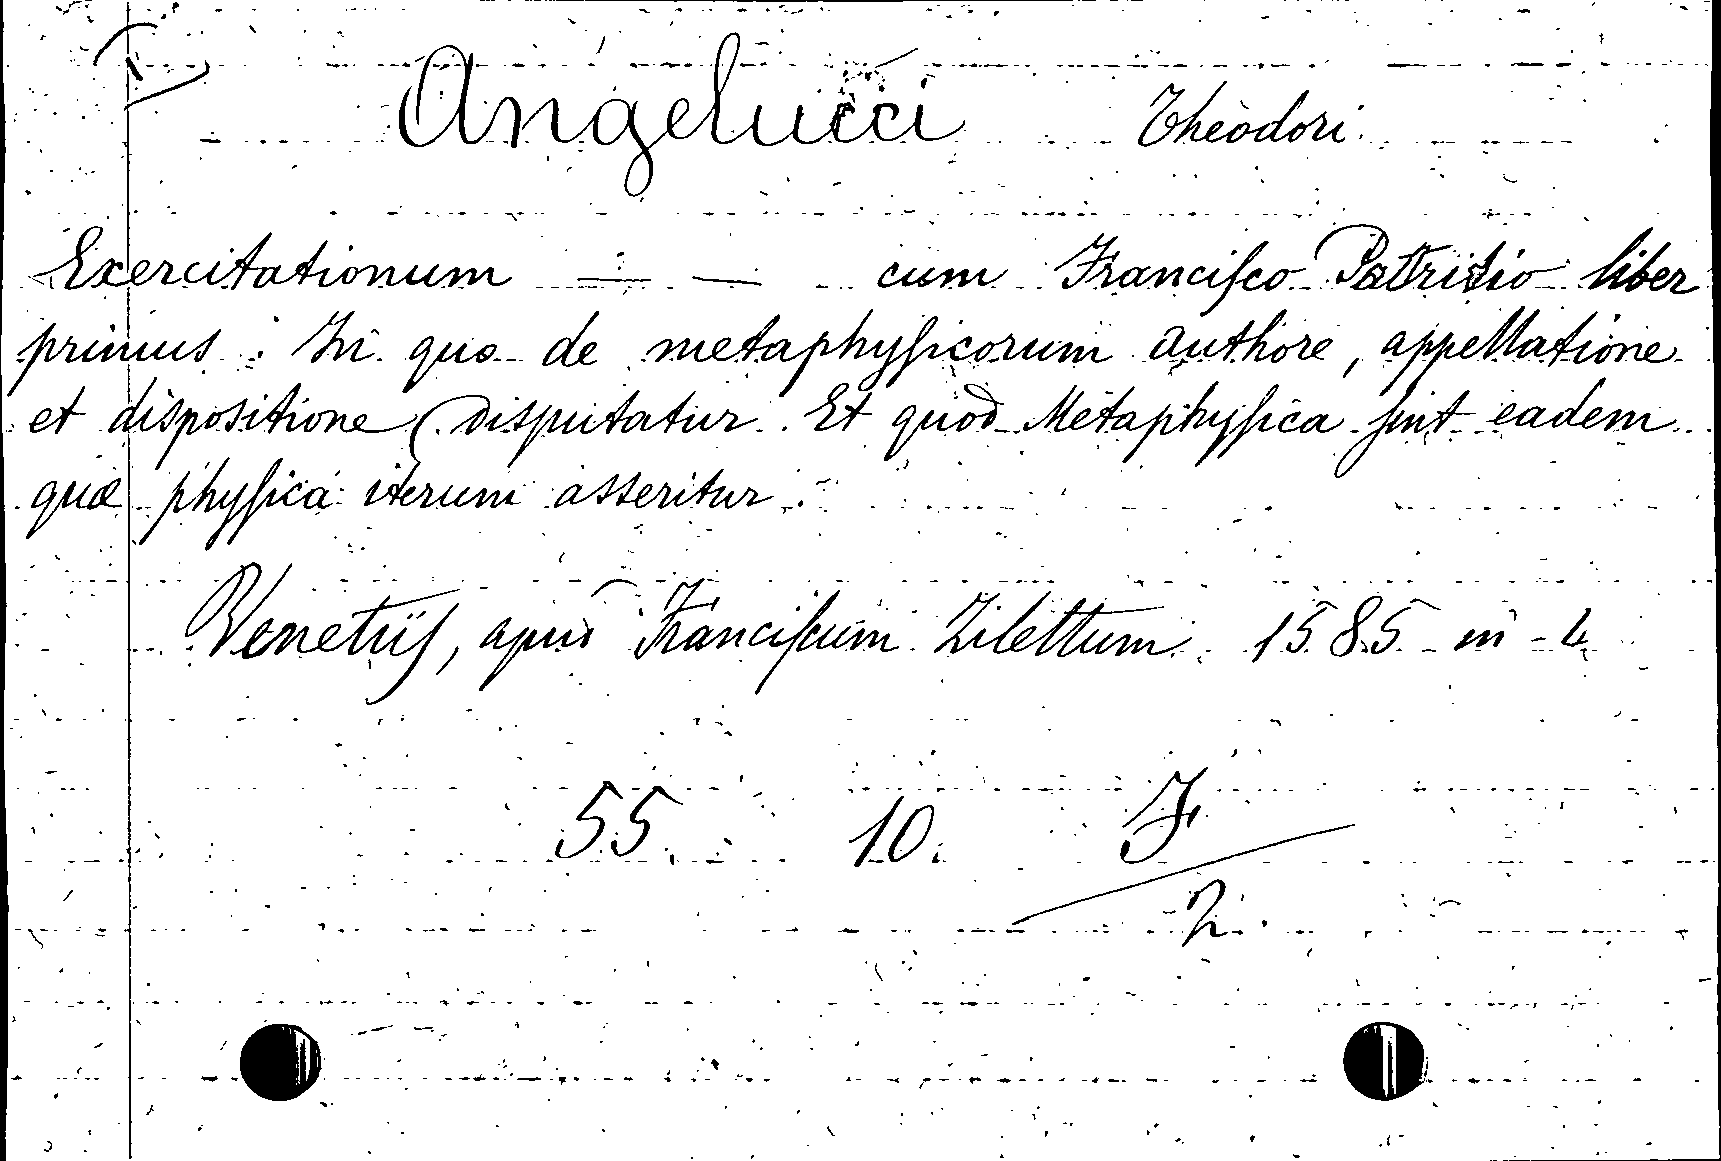 1
Angelucci Theodori
Exercitationum — — cum Francisco Patritio liber
primus. In quo de metaphysicorum authore, appellatione
et dispositione disputatur. Et quod Metaphysica sint eadem
quæ physica iterum asseritur.
Venetiis, apud Franciscum Zilettum. 1585 in-4
55. 10. F
2.